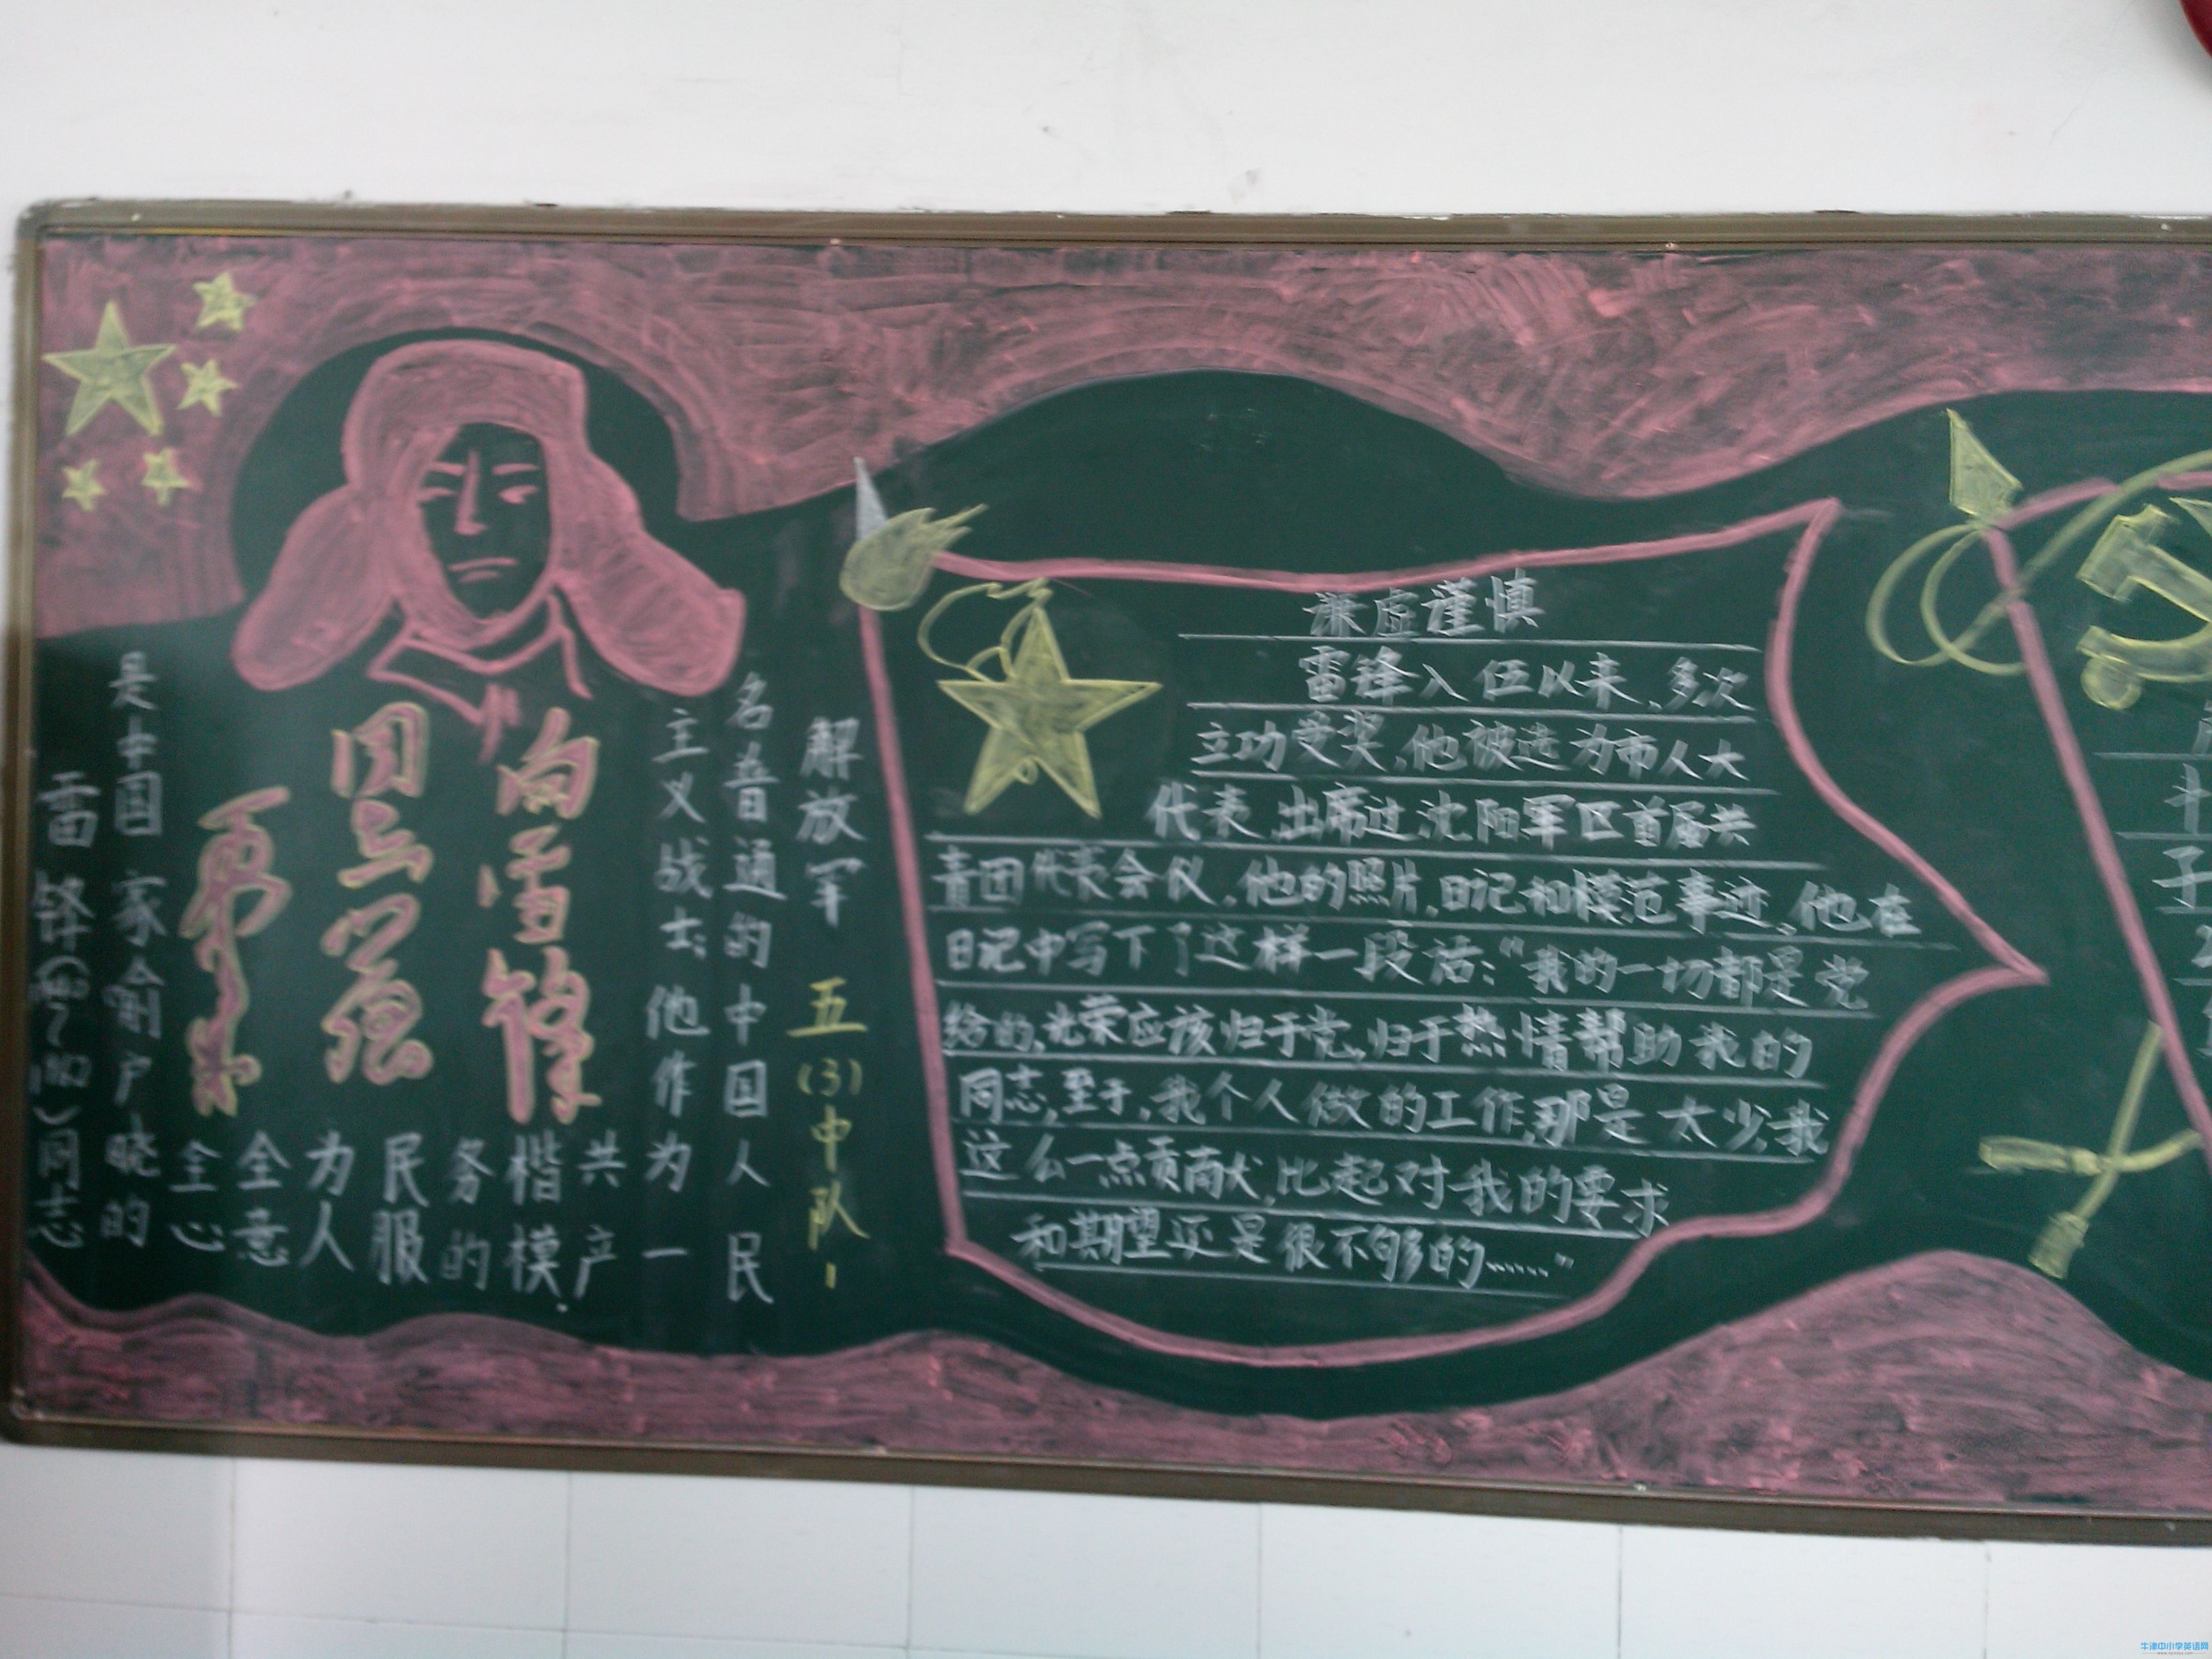 雷锋同志
是中国家喻户晓的
全心
全意
为人
民服
务的
楷模.
共产
主义战士;他作为一
名普通的中国人民
解放军
五(3)中队!
向雷锋
同志学习
毛泽东
谦虚谨慎
雷锋入伍以来,多次
立功受奖,他被选为市人大
代表,出席过沈阳军区首届共
青团代表会议,他的照片,日记和模范事迹,他在
日记中写下了这样一段话:“我的一切都是党
给的,光荣应该归于党,归于热情帮助我的
同志,至于,我个人做的工作,那是太少,我
这么一点贡献,比起对我的要求
和期望还是很不够的……”
牛津中小学英语网